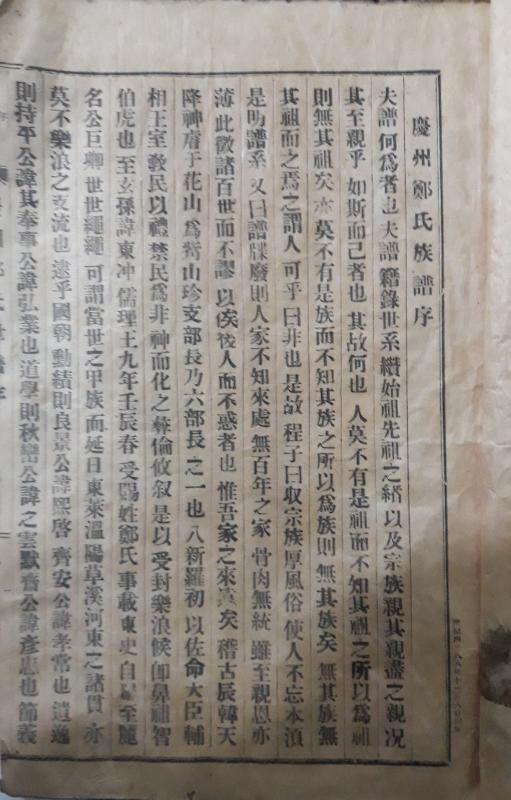 慶州鄭氏族譜序
夫譜何爲者也夫譜籍錄世系纘始祖先祖之緖以及宗族親其親盡之親况
其至親乎如斯而已者也其故何也人莫不有是祖而不知其祖之所以爲祖
則無其祖矣亦莫不有是族而不知其族之所以爲族則無其族矣無其族無
其祖而之焉之謂人可乎曰非也是故程子曰収宗族厚風俗使人不忘本湏
是明譜系又曰譜牒廢則人家不知來處無百年之家骨肉無統雖至親恩亦
薄此徵諸百世而不謬以俟後人而不惑者也惟吾家之來眞矣稽古辰韓天
降神 于花山爲觜山珍支部長乃六部長之一也入新羅初以佐命大臣輔
相王室敎民以禮禁民爲非神而化之彝倫攸叙是以受封樂浪候卽鼻祖智
伯虎也至玄孫諱東冲儒理王九年壬辰春受賜姓鄭氏事載東史自 至麗
名公巨 世世繩繩可謂當世之甲族而延日東萊溫陽草溪河東之諸貫亦
莫不樂浪之支流也逮乎國朝勳績則良景公諱熙啓齊安公諱孝常也遺逸
則持平公諱其奉事公諱弘業也道學則秋巒公諱之雲默齋公諱彥忠也節義